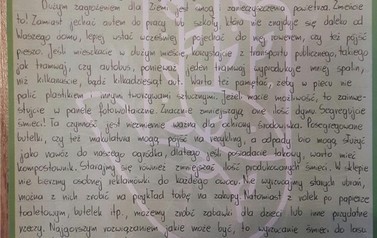 Dużym zagrożeniem dla Ziemi jest smog i zanieczyszczenie powietrza. Zmieńcie
to! Zamiast jechać autem do pracy lub szkoły, która nie znajduje się daleko od
Waszego domu, lepiej wstać wcześniej i pojechać do niej rowerem, czy też pójść
pieszo. Jeśli mieszkacie w dużym mieście, korzystajcie z transportu publicznego, takiego
jak tramwaj, czy autobus, ponieważ jeden tramwaj wyprodukuje mniej spalin,
niż kilkanaście, bądź kilkadziesiąt aut. Warto też pamiętać, żeby w piecu nie
palić plastikiem i innymi tworzywami sztucznymi. Jeśli macie możliwość, to zainwe-
stujcie w panele fotowoltaiczne. Znacznie zmniejszają one ilość dymu. Segregujcie
śmieci! Ta czynność jest niezmiernie ważna dla ochrony środowiska. Posegregowane
butelki, czy też makulatura mogą pójść na recykling, a odpady bio mogą służyć
jako nawóz do naszego ogródka, dlatego jeśli posiadacie takowy, warto mieć
kompostownik. Starajmy się również zmniejszać ilość produkowanych śmieci. W sklepie
nie bierzmy osobnej reklamówki do każdego owocu. Nie wyrzucajmy starych ubrań,
można z nich zrobić na przykład torbę na zakupy. Natomiast z rolek po papierze
toaletowym, butelek itp., możemy zrobić zabawki dla dzieci lub inne przydatne
rzeczy. Najgorszym rozwiązaniem, jakie może być, to wyrzucanie śmieci do lasu